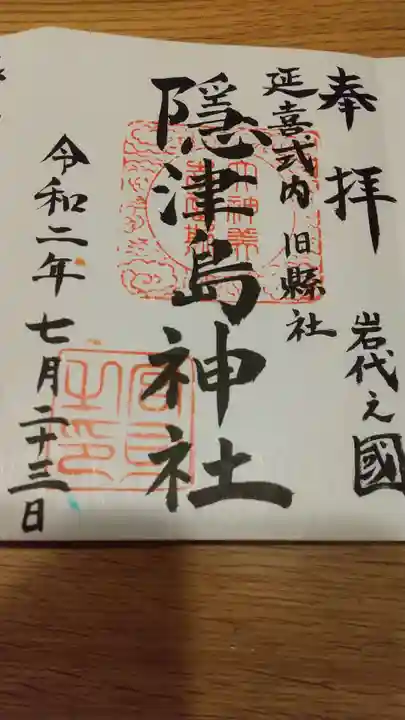 奉拝
岩代之國
延喜式内 旧縣社
隠津島神社
令和二年七月二十三日